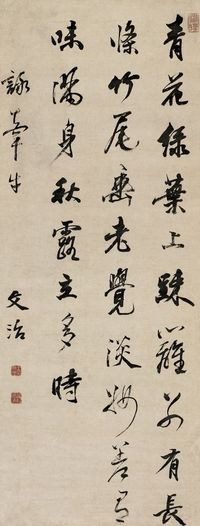 青花綠葉上疎籬別有長
條竹尾垂老覺淡妝差有
味滿身秋露立多時
詠牽牛
文治